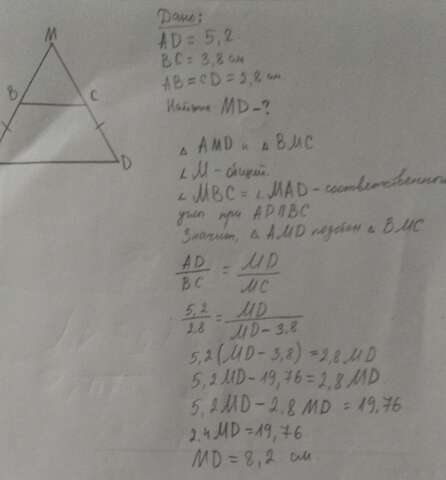 M
Дано:
AD = 5,2
BC = 3,8 см
B C
AB = CD = 2,8 см
Найти MD - ?
△ AMD и △ BMC
D
∠ M - общий.
∠ MBC = ∠ MAD - соответственной
углы при AD || BC
Значит, △ AMD подобен △ BMC
AD/BC = MD/MC
5,2/2,8 = MD/MD - 3,8
5,2 (MD - 3,8) = 2,8 MD
5,2 MD - 19,76 = 2,8 MD
5,2 MD - 2,8 MD = 19,76
2,4 MD = 19,76
MD = 8,2 см